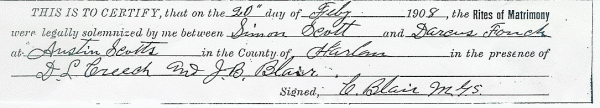 THIS IS TO CERTIFY, that on the 20" day of Feby 1908, the Rites of Matrimony
were legally solemnized by me between Simon Scott and Darcus Fouch
at Austin Scotts in the County of Harlan in the presence of
D. L. Creech and J. B. Blair
Signed, C. Blair M.G.